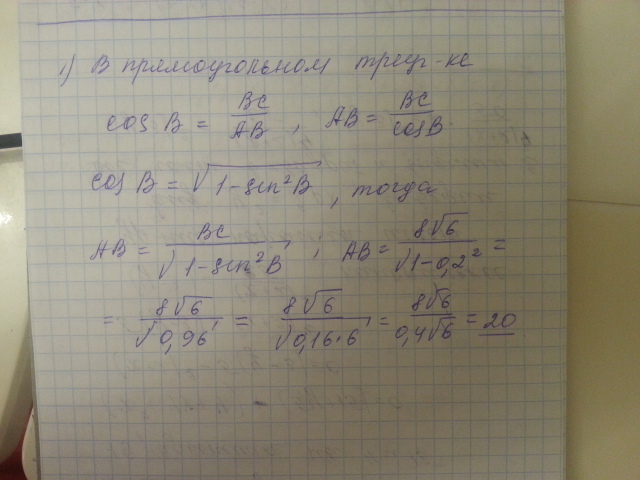 1) В прямоугольном треуг-ке
cos B = BC/AB, AB = BC/cosB
cos B = √(1-sin²B), тогда
AB = BC/√(1-sin²B); AB = 8√6/√(1-0,2²) =
= 8√6/√0,96 = 8√6/√(0,16·6) = 8√6/0,4√6 = 20